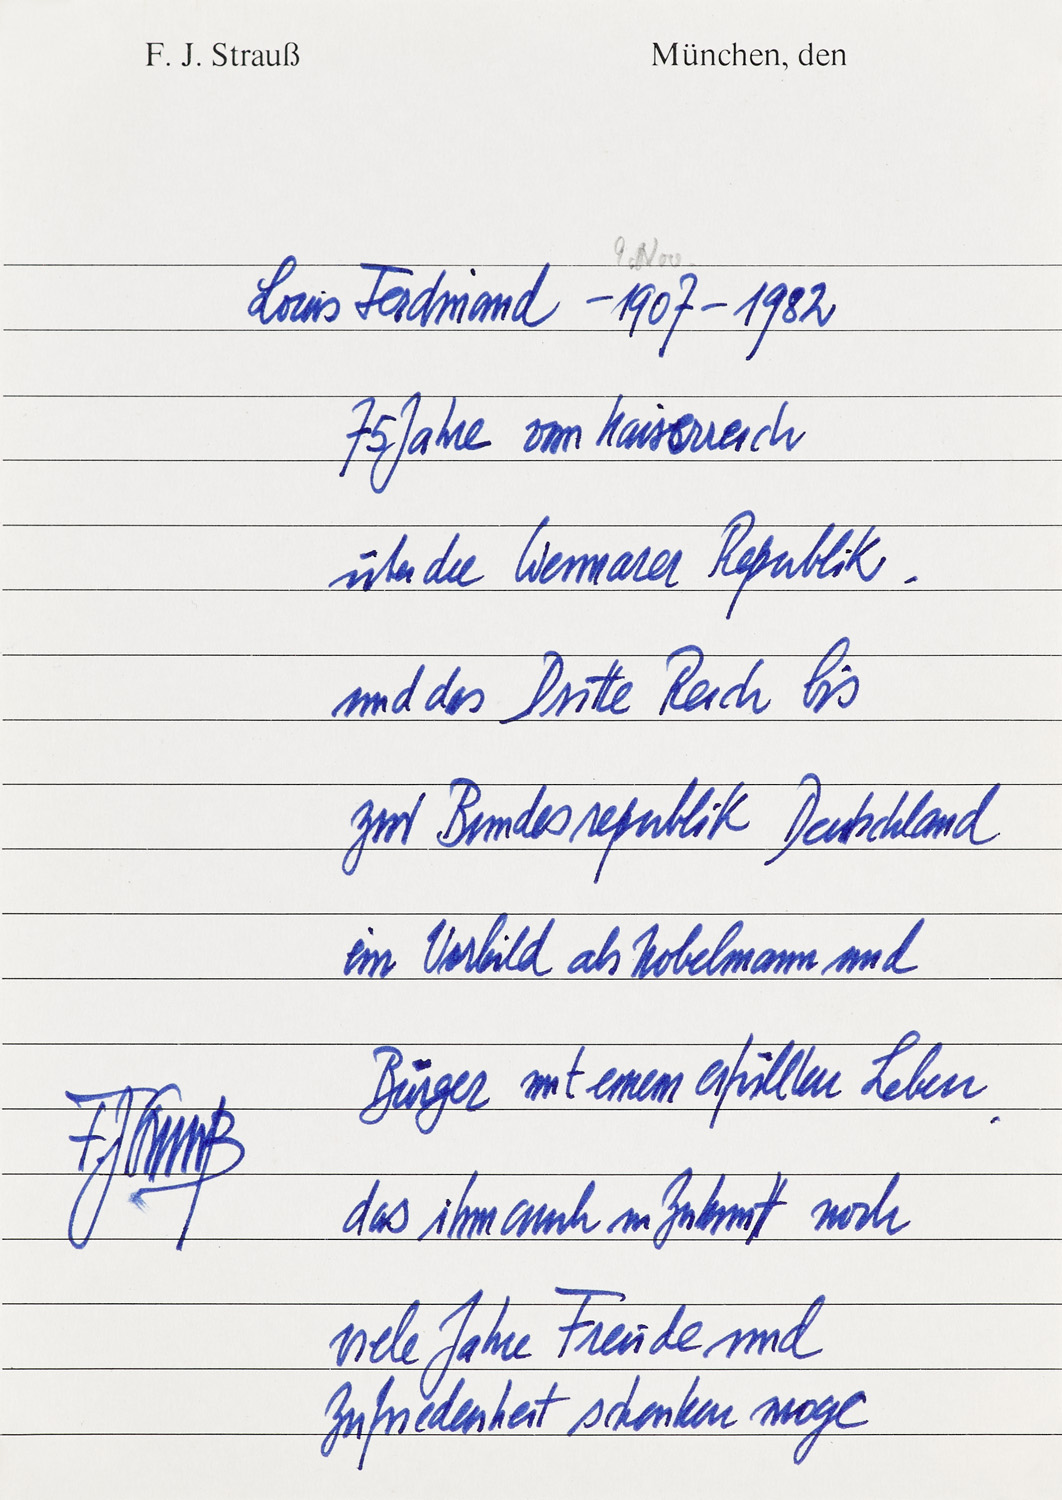 F. J. Strauß München, den
9. Nov.
Louis Ferdinand - 1907 - 1982
75 Jahre vom Kaiserreich
über die Weimarer Republik.
und das Dritte Reich bis
zur Bundesrepublik Deutschland
ein Vorbild als Nobelmann und
Bürger mit einem erfüllten Leben,
das ihm auch in Zukunft noch
viele Jahre Freude und
Zufriedenheit schenken möge
FJStrauß